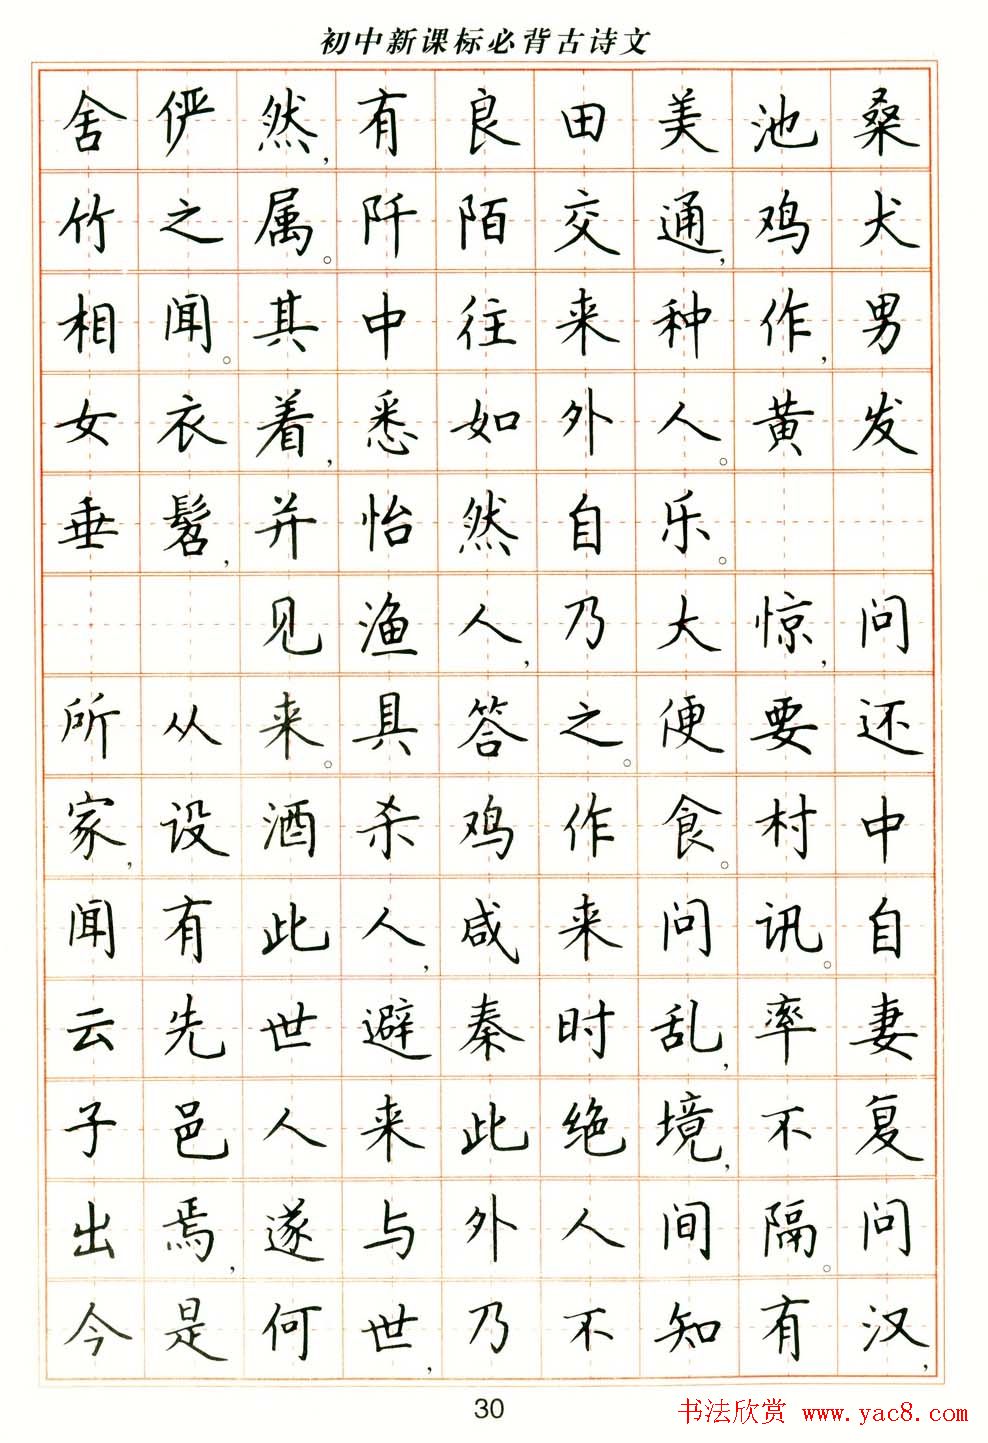 初中新课标必背古诗文
舍俨然,有良田美池桑
竹之属。阡陌交通,鸡犬
相闻。其中往来种作,男
女衣着,悉如外人。黄发
垂髫,并怡然自乐。
见渔人,乃大惊,问
所从来。具答之。便要还
家,设酒杀鸡作食。村中
闻有此人,咸来问讯。自
云先世避秦时乱,率妻
子邑人来此绝境,不复
出焉,遂与外人间隔。问
今是何世,乃不知有汉,
30
书法欣赏 www.yac8.com